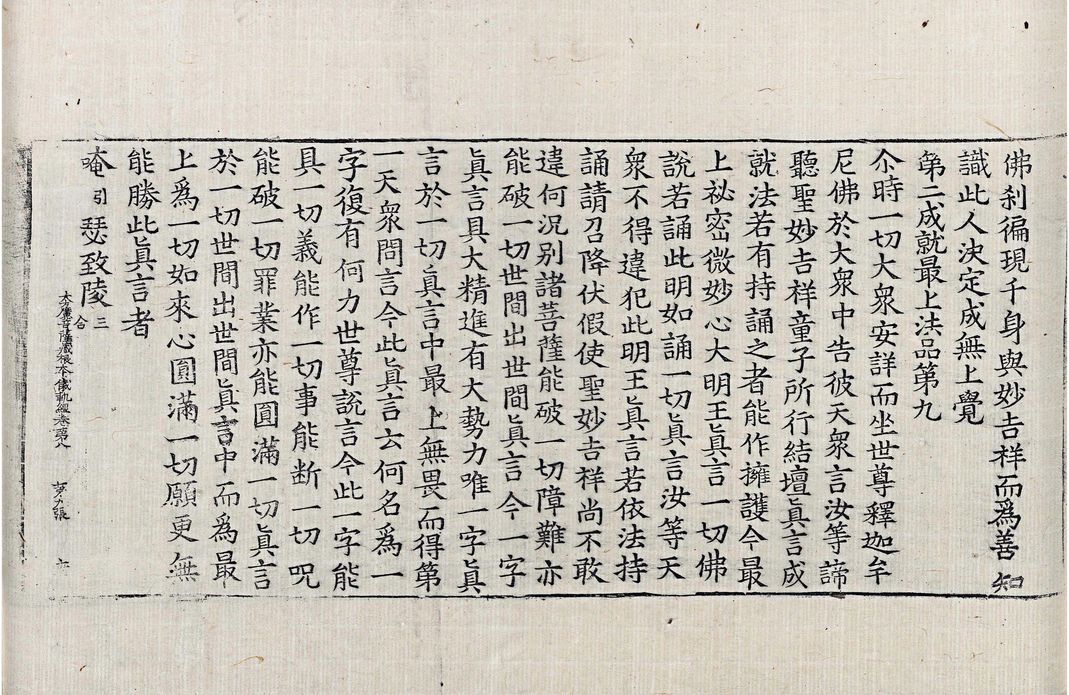 佛刹徧現千身與妙吉祥而爲善知
識此人決定成無上覺
第二成就最上法品第九
尒時一切大衆安詳而坐世尊釋迦牟
尼佛於大衆中告彼天衆言汝等諦
聽聖妙吉祥童子所行結壇眞言成
就法若有持誦之者能作擁護今最
上祕密微妙心大明王眞言一切佛
說若誦此明如誦一切眞言汝等天
衆不得違犯此明王眞言若依法持
誦請召降伏假使聖妙吉祥尚不敢
違何況别諸菩薩能破一切障難亦
能破一切世間出世間眞言今一字
眞言具大精進有大勢力唯一字眞
言於一切眞言中最上無畏而得第
一天衆問言今此眞言云何名爲一
字復有何力世尊說言今此一字能
具一切義能作一切事能断一切呪
能破一切罪業亦能圓滿一切眞言
於一切世間出世間眞言中而爲最
上爲一切如來心圓滿一切願更無
能勝此眞言者
唵引瑟致陵三合
大方廣菩薩藏根本儀軌經卷第八 六